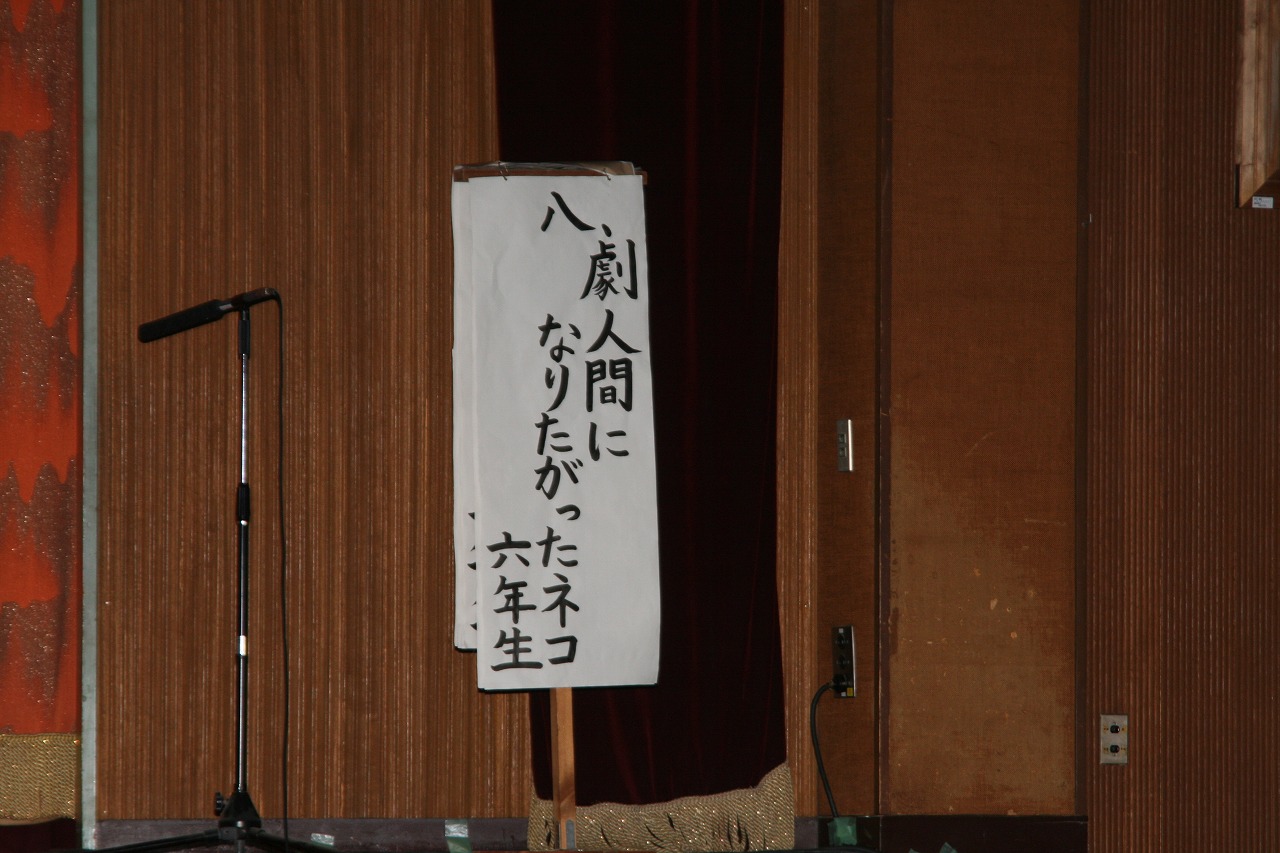 八、劇 人間に
なりたがったネコ
六年生